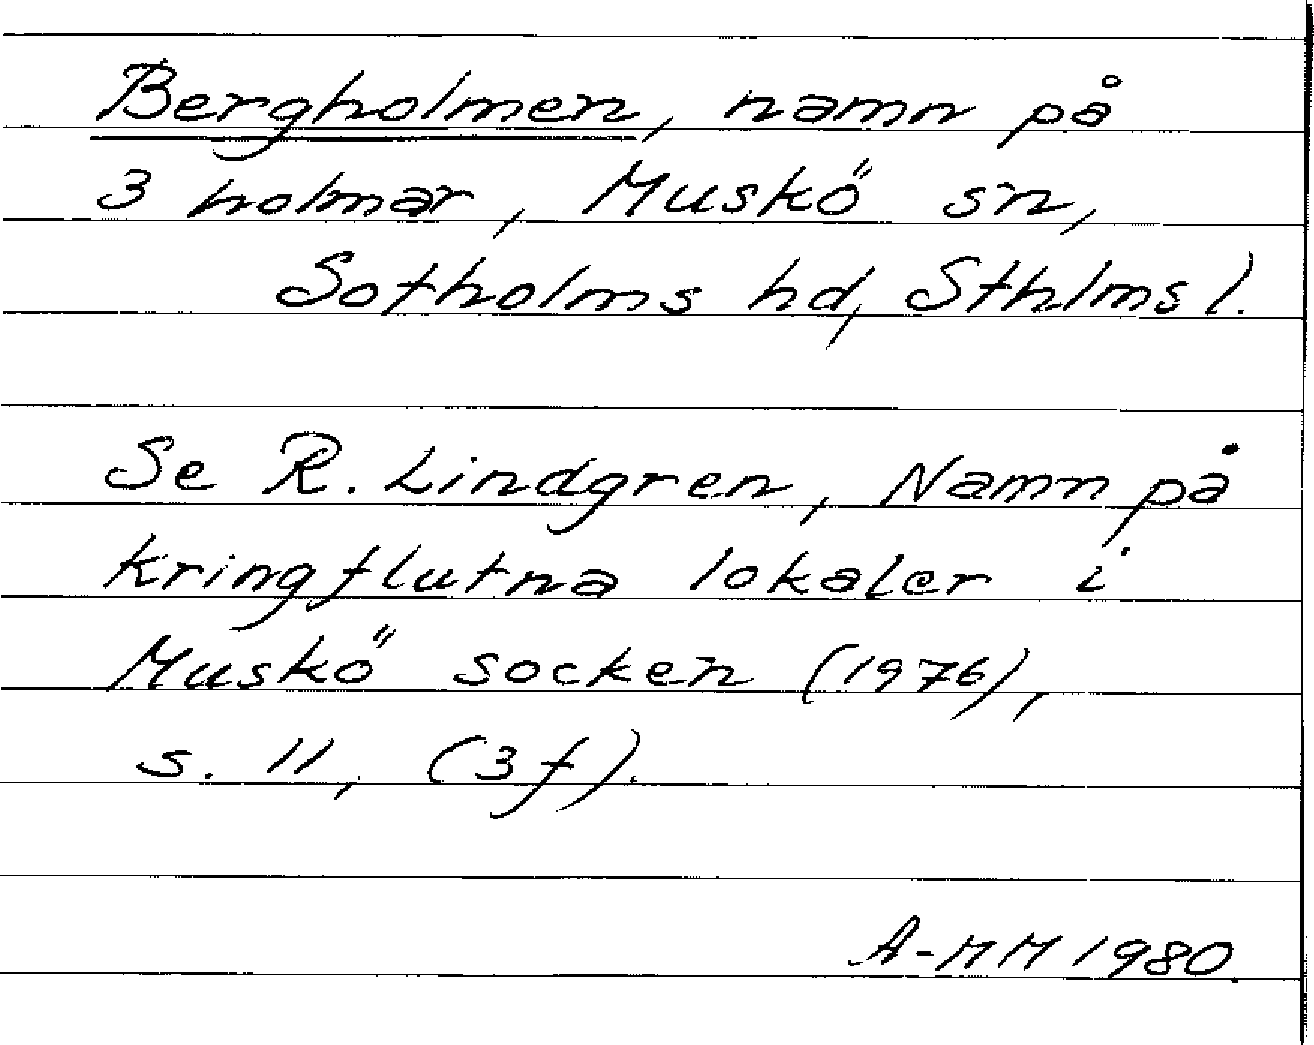 Bergholmen, namn på
3 holmar, Muskö sn,
Sotholms hd, Sthlms l.
Se R. Lindgren, Namn på
kringflutna lokaler i
Muskö socken (1976),
s. 11, (3 f).
A-MM 1980.